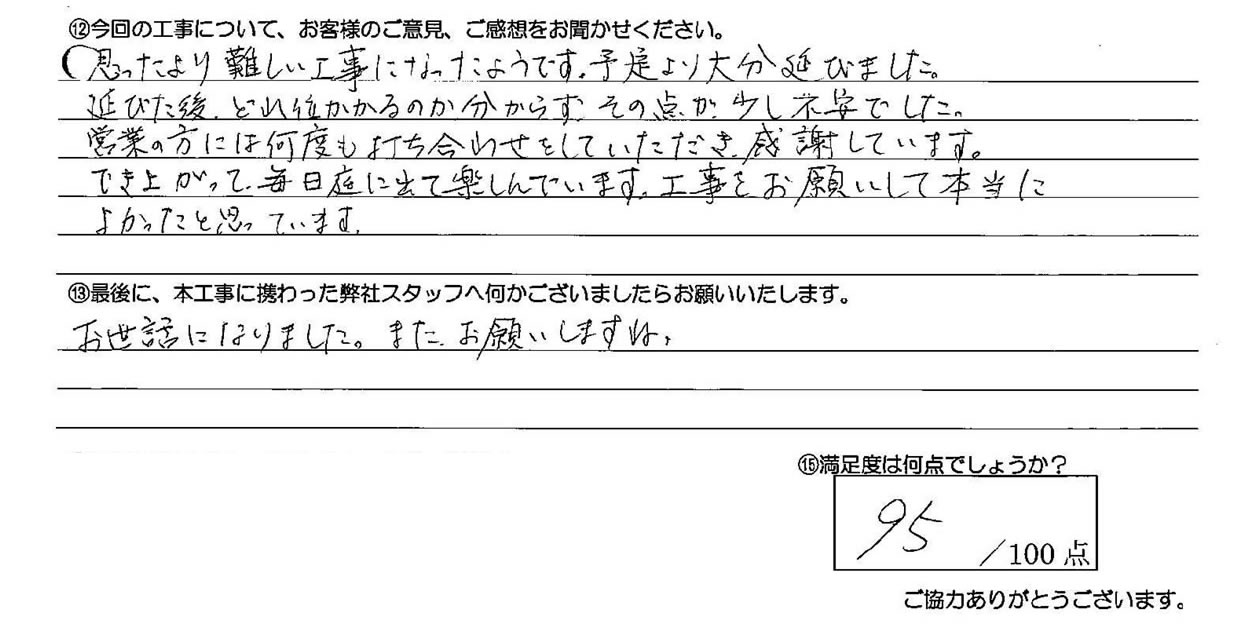 ⑫今回の工事について、お客様のご意見、ご感想をお聞かせください。
思ったより難しい工事になったようです。予定より大分延びました。
延びた後、どれ位かかるのか分からず、その点が少し不安でした。
営業の方には何度も打ち合わせをしていただき、感謝しています。
でき上がって、毎日庭に出て楽しんでいます。工事をお願いして本当に
よかったと思っています。
⑬最後に、本工事に携わった弊社スタッフへ何かございましたらお願いいたします。
お世話になりました。また、お願いしますね。
⑮満足度は何点でしょうか？
95 /100 点
ご協力ありがとうございます。